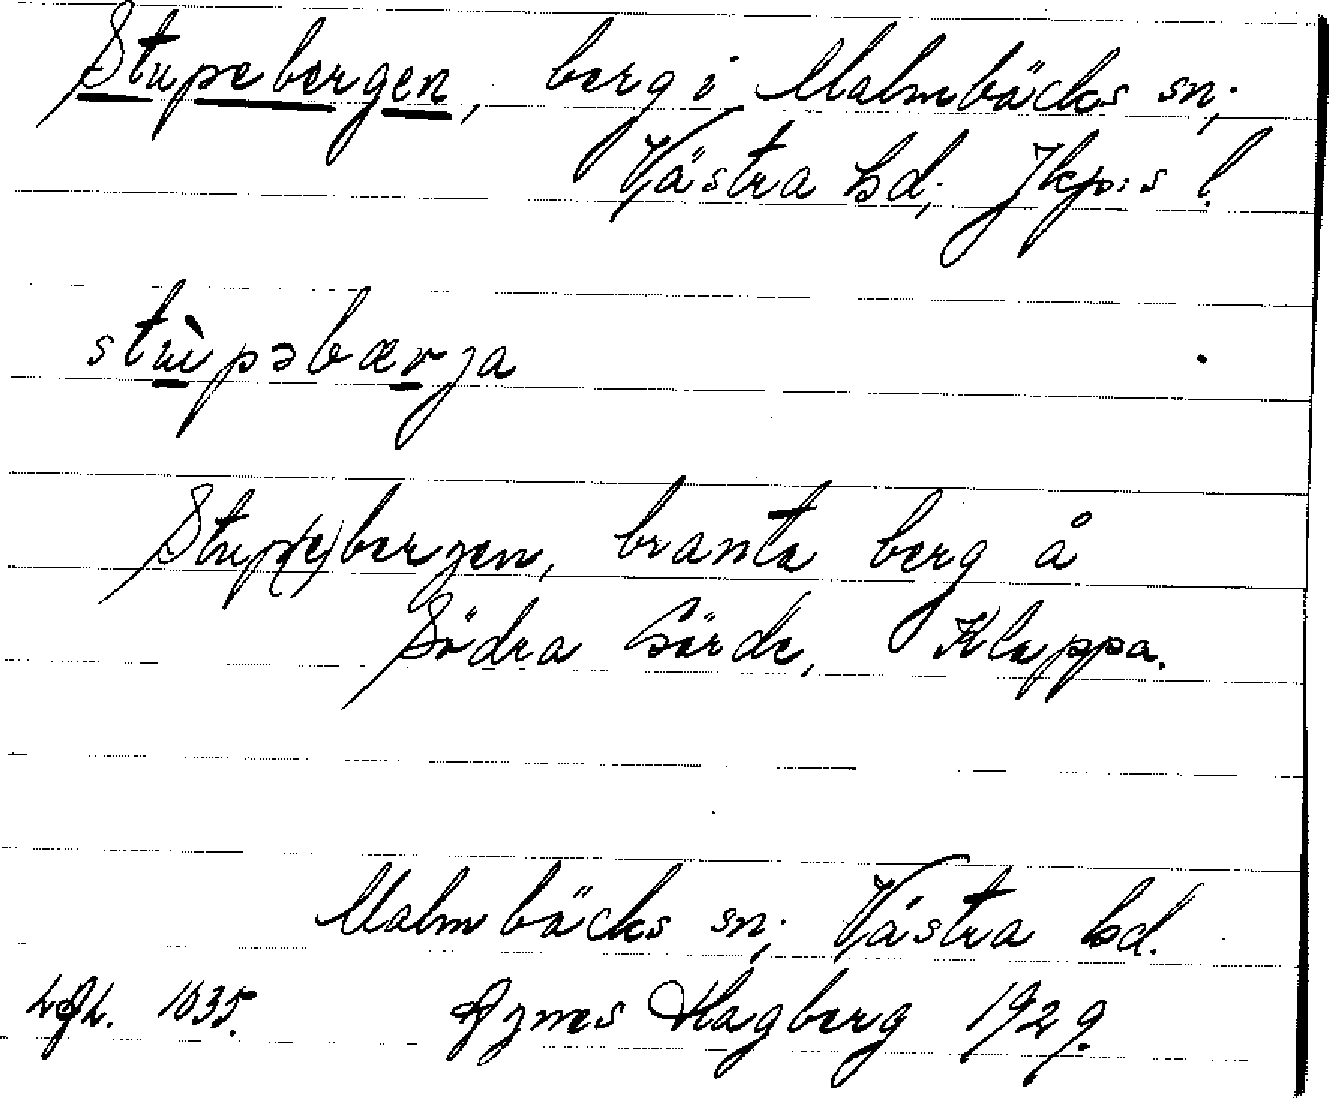 Stupebergen, berg i Malmbäcks sn;
Västra hd; Jkp:s l.
stùpəbærja
Stup(e)bergen, branta berg å
Södra Gärde, Klappa.
Malmbäcks sn; Västra hd.
1035. Agnes Hagberg 1929.